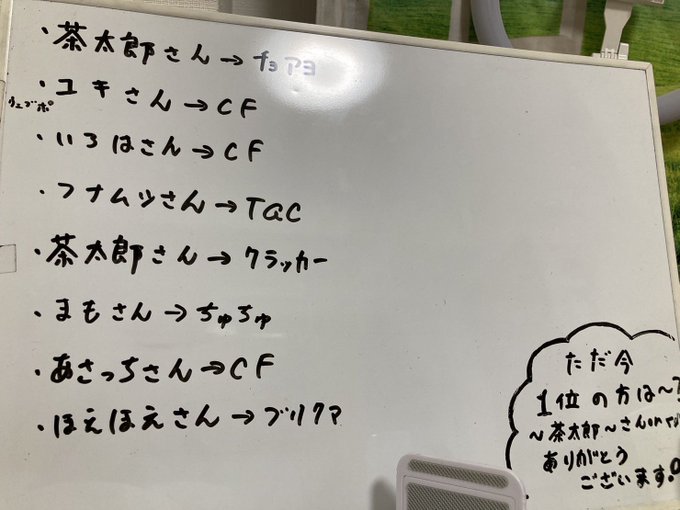 ・茶太郎さん→チョアヨ
・ユキさん→CF
ウェブポ
・いろはさん→CF
・フナムツさん→TaC
・茶太郎さん→クラッカー
・まもさん→ちゅちゅ
・あさっちさん→CF
・ほえほえさん→ブリクマ
ただ今
1位の方は〜?
〜茶太郎〜さん
ありがとう
ございます!!